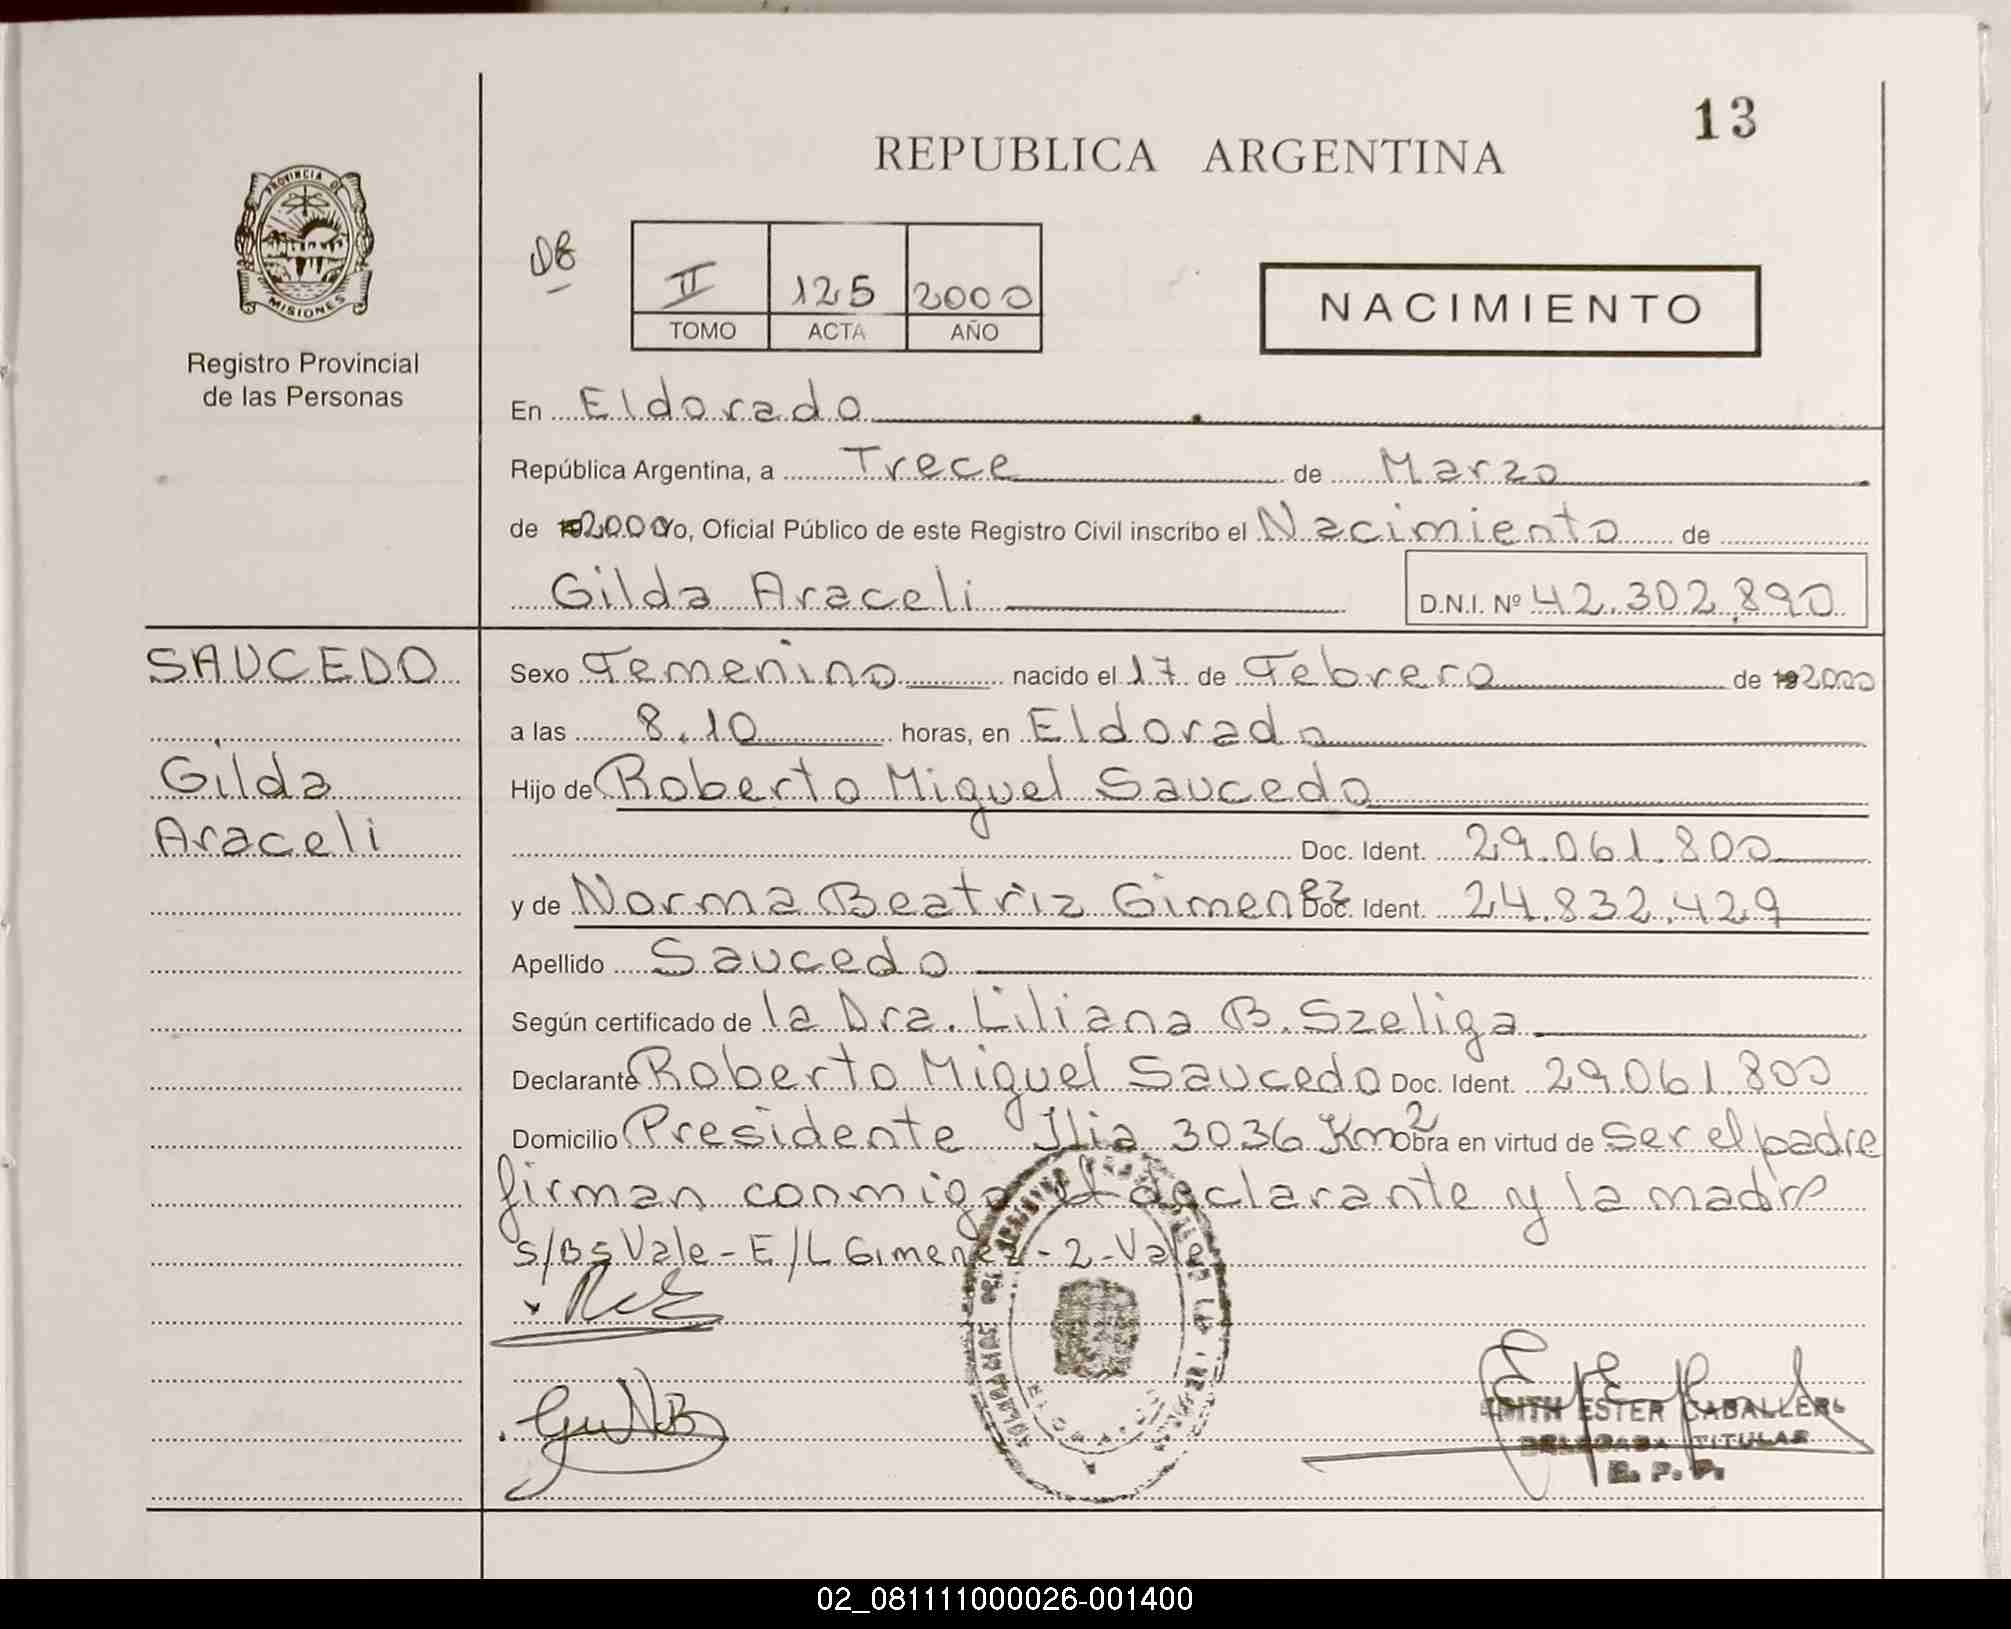 13
REPUBLICA ARGENTINA
PROVINCIA DE
MISIONES
Registro Provincial
de las Personas
II 125 2000
TOMO ACTA AÑO
NACIMIENTO
En Eldorado
República Argentina, a Trece de Marzo
de 192000 Yo, Oficial Público de este Registro Civil inscribo el Nacimiento de
Gilda Araceli D.N.I. Nº 42.302.890
SAUCEDO
Gilda
Araceli
Sexo Femenino nacido el 17 de Febrero de 192000
a las 8.10 horas, en Eldorado
Hijo de Roberto Miguel Saucedo
Doc. Ident. 29.061.800
y de Norma Beatriz Gimenez Doc. Ident. 24.832.429
Apellido Saucedo
Según certificado de la Dra. Liliana B. Szeliga
Declarante Roberto Miguel Saucedo Doc. Ident. 29.061.800
Domicilio Presidente Ilia 3036 Km2 Obra en virtud de ser el padre
firman conmigo el declarante y la madre
S/Bs Vale - E/L Gimenez - 2 - Vale
EDITH ESTER CABALLERO
DELEGADA TITULAR
R. P. P.
02_081111000026-001400